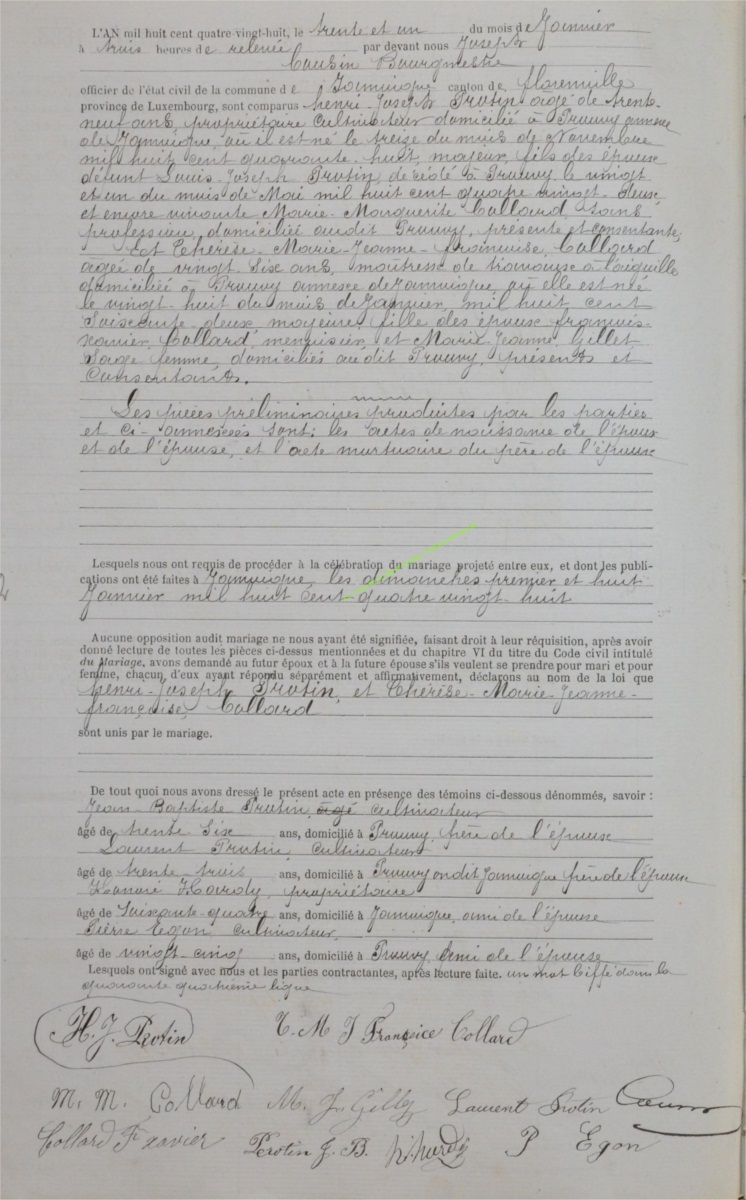 L'AN mil huit cent quatre-vingt-huit, le trente et un du mois de Janvier
à trois heures de relevée par devant nous Joseph
Cousin Bourgmestre
officier de l'état civil de la commune de Jamoigne canton de florenville
province de Luxembourg, sont comparus henri-Joseph Protin agé de trente-
neuf ans propriétaire cultivateur domicilié à Prouvy annexe
de Jamoigne, où il est né le treize du mois de Novembre
mil huit cent quarante-huit, majeur, fils des époux
défunt Louis-Joseph Protin décédé à Prouvy le vingt
et un du mois de Mai mil huit cent quatre vingt-deux
et encore vivante Marie-Marguerite Collard, sans
profession, domiciliée audit Prouvy, présente et consentante,
Et Thérèse-Marie-Jeanne-françoise, Collard
agée de vingt-six ans, maitresse de travaux à l'aiguille
domiciliée à Prouvy annexe de Jamoigne, où elle est née
le vingt-huit du mois de Janvier, mil huit cent
Soixante-deux majeure, fille des époux françois-
xavier, Collard, menuisier, et Marie-Jeanne, Gillet
Sage femme, domiciliés audit Prouvy, présents et
Consentants.
Les pièces préliminaires produites par les parties
et ci-annexées sont: les actes de naissance de l'époux
et de l'épouse, et l'acte mortuaire du père de l'époux
Lesquels nous ont requis de procéder à la célébration du mariage projeté entre eux, et dont les publi-
cations ont été faites à Jamoigne, les dimanches premier et huit
Janvier mil huit cent quatre vingt huit
Aucune opposition audit mariage ne nous ayant été signifiée, faisant droit à leur réquisition, après avoir
donné lecture de toutes les pièces ci-dessus mentionnées et du chapitre VI du titre du Code civil intitulé
du Mariage, avons demandé au futur époux et à la future épouse s'ils veulent se prendre pour mari et pour
femme, chacun d'eux ayant répondu séparément et affirmativement, déclarons au nom de la loi que
henri-Joseph Protin, et Thérèse-Marie-Jeanne-
françoise, Collard
sont unis par le mariage.
De tout quoi nous avons dressé le présent acte en présence des témoins ci-dessous dénommés, savoir :
Jean-Baptiste Protin, agé cultivateur
âgé de trente Six ans, domicilié à Prouvy, frère de l'époux
Laurent Protin, cultivateur
âgé de trente-trois ans, domicilié à Prouvy ondit Jamoigne frère de l'époux
Honoré Hardy, propriétaire
âgé de Soixante-quatre ans, domicilié à Jamoigne, ami de l'épouse
Pierre Egon cultivateur,
âgé de vingt-cinq ans, domicilié à Prouvy ami de l'épouse
Lesquels ont signé avec nous et les parties contractantes, après lecture faite. un mot biffé dans la
quarante quatrième ligne
H. J. Protin T. M. J Françoice Collard
M. M. Collard M. J. Gillet Laurent Protin Cousin
Collard F xavier Protin J. B. h hardy P Egon